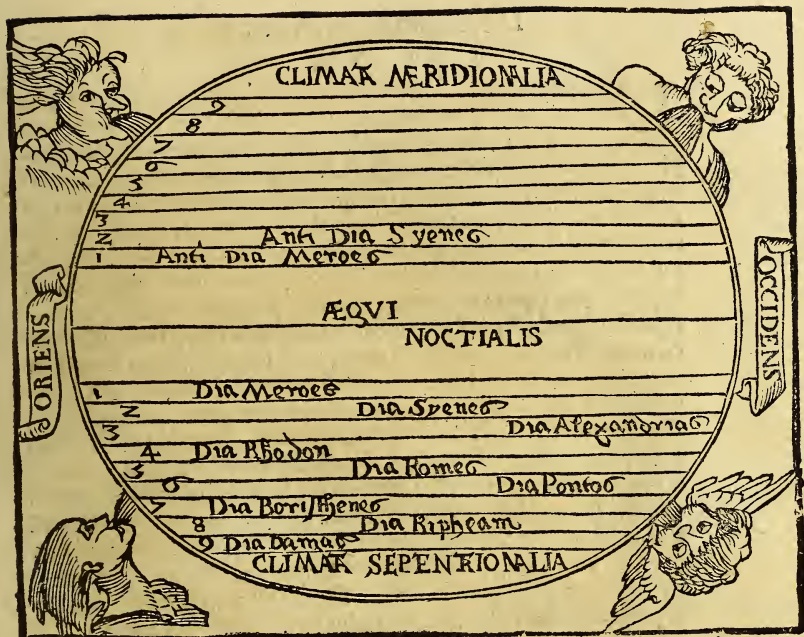 CLIMATA MERIDIONALIA
9
8
7
6
5
4
3
2 Anti Dia Syenes
1 Anti Dia Meroes
ÆQVI
NOCTIALIS
ORIENS
OCCIDENS
1 Dia Meroes
2 Dia Syenes
3 Dia Alexandrias
4 Dia Rhodon
5 Dia Romes
6 Dia Pontos
7 Dia Boristhenes
8 Dia Ripheam
9 Dia Damas
CLIMATA SEPTENTRIONALIA